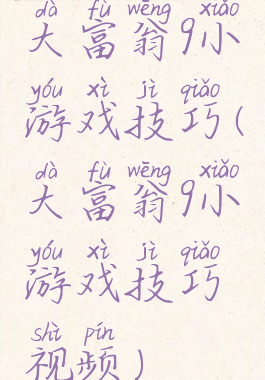 dà fù wēng xiǎo
大富翁9小
yóu xì jì qiǎo
游戏技巧(
dà fù wēng xiǎo
大富翁9小
yóu xì jì qiǎo
游戏技巧
shì pín
视频)